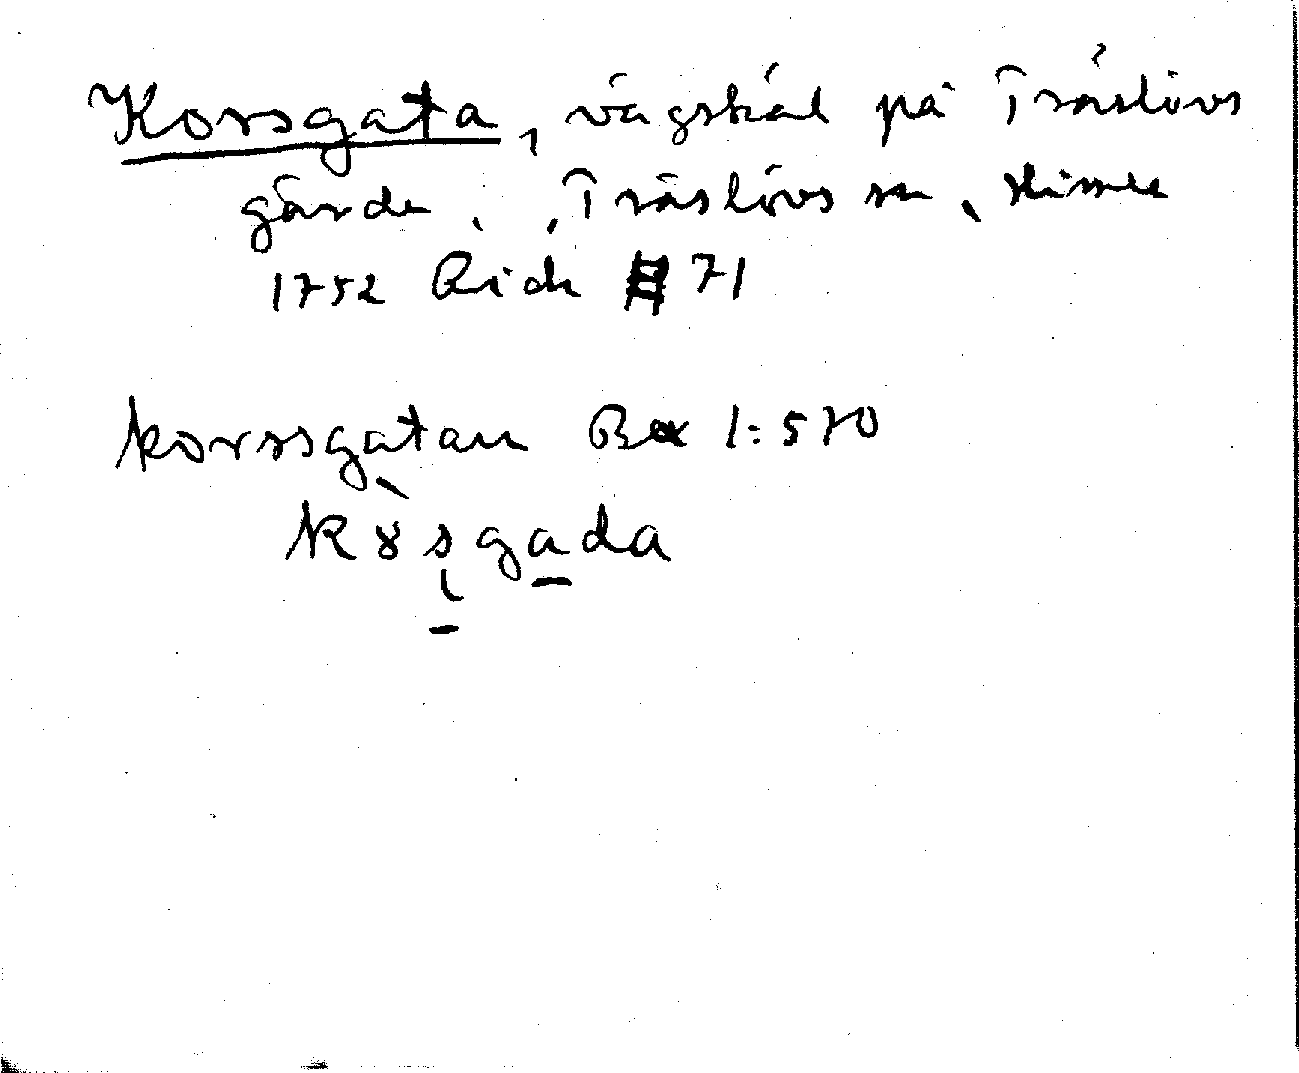 Korsgata, vägskäl på Träslövs
gärde, Träslövs sn, Himle
1752 Rich 71
korssgatan Box 1:570
kɤsgada